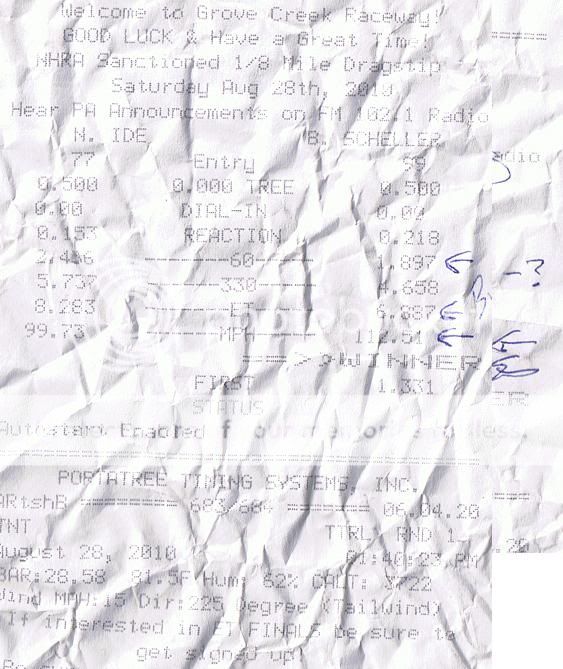 Welcome to Grove Creek Raceway!
GOOD LUCK & Have a Great Time!
NHRA Sanctioned 1/8 Mile Dragstrip
Saturday Aug 28th, 2010
Hear PA Announcements on FM 102.1 Radio
N. IDE B. SCHELLER
77 Entry 99
0.500 0.000 TREE 0.500
0.00 DIAL-IN 0.00
0.153 REACTION 0.218
2.436 --------60----- 1.897
5.737 -------330----- 4.658
8.283 -------ET------ 6.687
99.73 ------MPH------ 112.51
===>>WINNER
FIRST 1.331
STATUS
Autostart Enabled
PORTATREE TIMING SYSTEMS, INC.
ARtshB ========= 683/684 ======= 06.04.20
TNT TTRL RND 1
August 28, 2010 01:40:23 PM
BAR:28.58 81.5F Hum: 62% CALT: 3722
Wind MPH:15 Dir:225 Degree (Tailwind)
If interested in ET FINALS be sure to
get signed up!